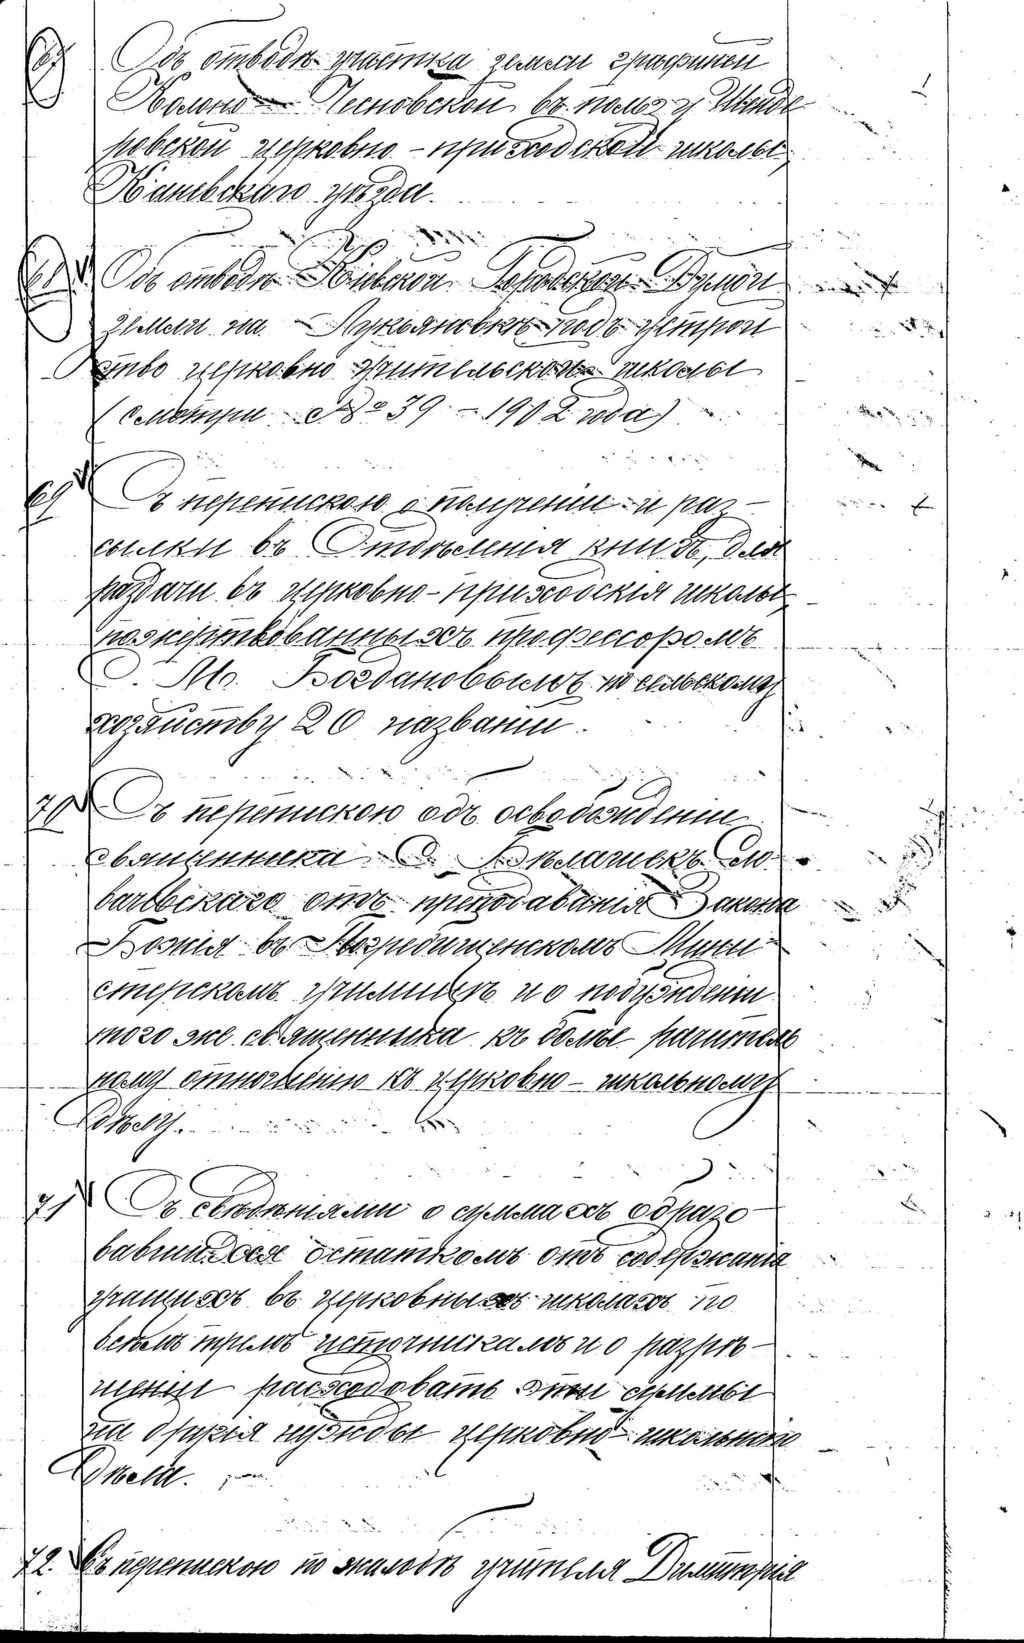 67 Объ отводѣ участка земли графиней
Колоно-Чесновской въ пользу Шенде
ровской церковно-приходской школы,
Каневскаго уѣзда.
68 Объ отводѣ Кіевской Городской Думой
земли на Лукьяновкѣ подъ устрой
ство церковно учительской школы
(смотри № 39 - 1902 года)
69 Съ перепискою о полученіи и раз-
сылки въ Отдѣленія книгъ, для
раздачи въ церковно-приходскія школы,
пожертвованныхъ профессоромъ
С. М. Богдановымъ по сельскому
хозяйству 20 названій.
70 Съ перепискою объ освобожденіи
священника С. Бѣлачекъ Сло
бачевскаго отъ преподаванія Закона
Божія въ Погребищенскомъ Мини
стерскомъ училищѣ и о побужденіи
того же священника къ болѣе рачитель
ному отношенію къ церковно-школьному
дѣлу.
71 Съ свѣдѣніями о суммахъ образо
вавшихся остаткомъ отъ содержанія
учащихъ въ церковныхъ школахъ по
всѣмъ тремъ источникамъ и о разрѣ-
шеніи расходовать эти суммы
на другія нужды церковно-школьнаго
дѣла.
72. Съ перепискою по жалобѣ учителя Димитрія